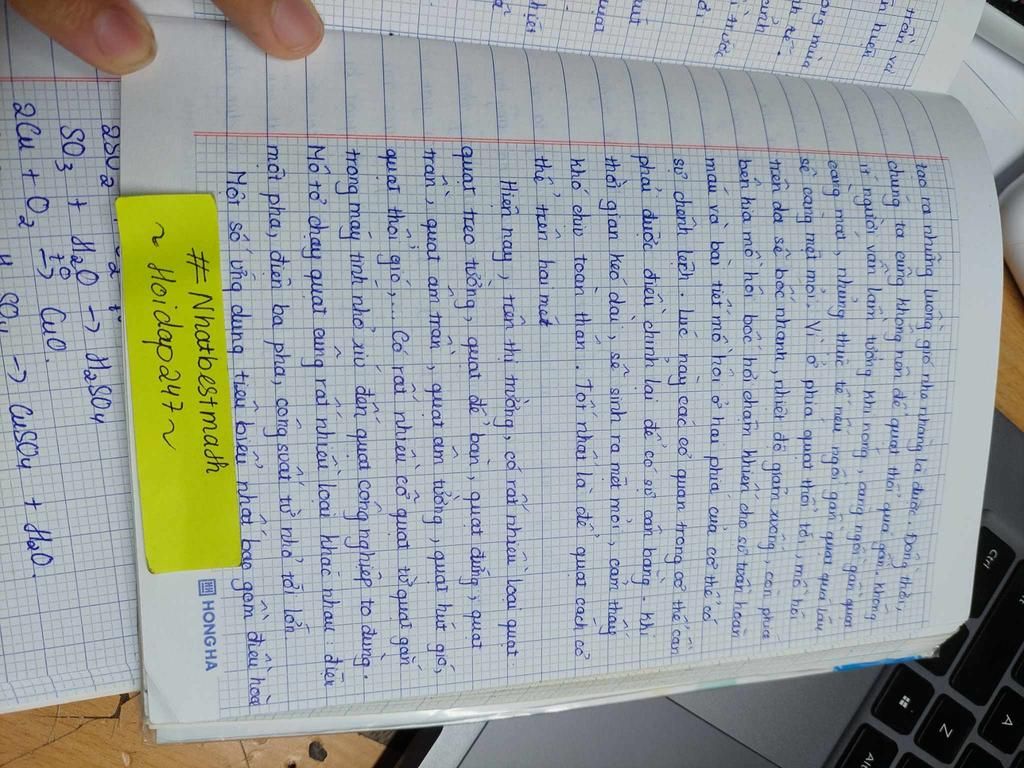 tạo ra những luồng gió nhẹ nhàng là được. Đồng thời,
chúng ta cũng không nên để quạt thổi quá gần. Không
ít người vẫn lầm tưởng khi nóng, càng ngồi gần quạt
càng mát, nhưng thực tế nếu ngồi gần quạt quá lâu
sẽ càng mệt mỏi. Vì ở phía quạt thổi tới, mồ hôi
trên da sẽ bốc nhanh, nhiệt độ giảm xuống, còn phía
bên kia mồ hôi bốc hơi chậm khiến cho sự tuần hoàn
máu và bài tiết mồ hôi ở hai phía của cơ thể có
sự chênh lệch. Lúc này các cơ quan trong cơ thể cần
phải được điều chỉnh lại để có sự cân bằng. Khi
thời gian kéo dài, sẽ sinh ra mệt mỏi, cảm thấy
khó chịu toàn thân. Tốt nhất là để quạt cách cơ
thể trên hai mét
Hiện nay, trên thị trường, có rất nhiều loại quạt
quạt treo tường, quạt để bàn, quạt đứng, quạt
trần, quạt âm trần, quạt âm tường, quạt hút gió,
quạt thổi gió,.... Có rất nhiều cỡ quạt từ quạt gắn
trong máy tính nhỏ xíu đến quạt công nghiệp to đùng.
Mô tơ chạy quạt cũng rất nhiều loại khác nhau điện
một pha, điện ba pha, công suất từ nhỏ tới lớn
Một số ứng dụng tiêu biểu nhất bao gồm điều hòa
#Nhatbestmath
~ Hoidap247 ~
HONG HA
2SO2
SO3 + H2O -> H2SO4
2Cu + O2 t° -> CuO.
SO4 -> CuSO4 + H2O.
Ctrl
Z
A
Alt